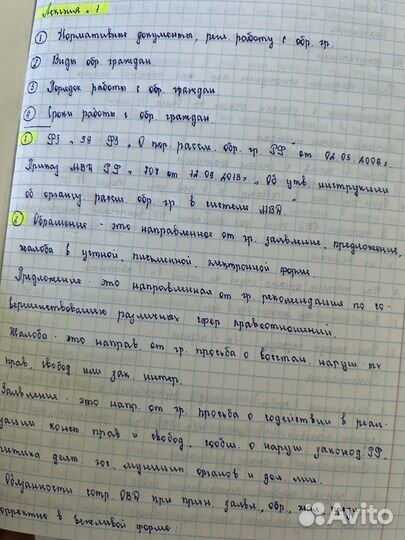 Лекция 1
① Нормативные документы, регл. работу с обр. гр.
② Виды обр. граждан
③ Порядок работы с обр. граждан
④ Сроки работы с обр. граждан.
① ФЗ „ 59 ФЗ „ О пор. рассм. обр. гр. РФ" от 02.05.2006г.
Приказ МВД РФ „ 707 от 12.09.2013г „ Об утв. инструкции
об организ. рассм. обр. гр. в системе МВД"
② Обращение - это направленное от гр. заявление, предложение,
жалоба в устной, письменной, электронной форме.
Предложение - это направленная от гр. рекомендация по со-
вершенствованию различных сфер правоотношений.
Жалоба - это направ. от гр. просьба о восстан. наруш. их
прав, свобод или зак. интер.
Заявление - это напр. от гр. просьба о содействии в реал-
зации конст. прав и свобод, сообщ. о наруш. законод. РФ,
критика деят. гос, муницип. органов и дол. лиц.
Обязанности сотр. ОВД при прин. заявл., обр., жал.
корректно в вежливой форме:
Avito